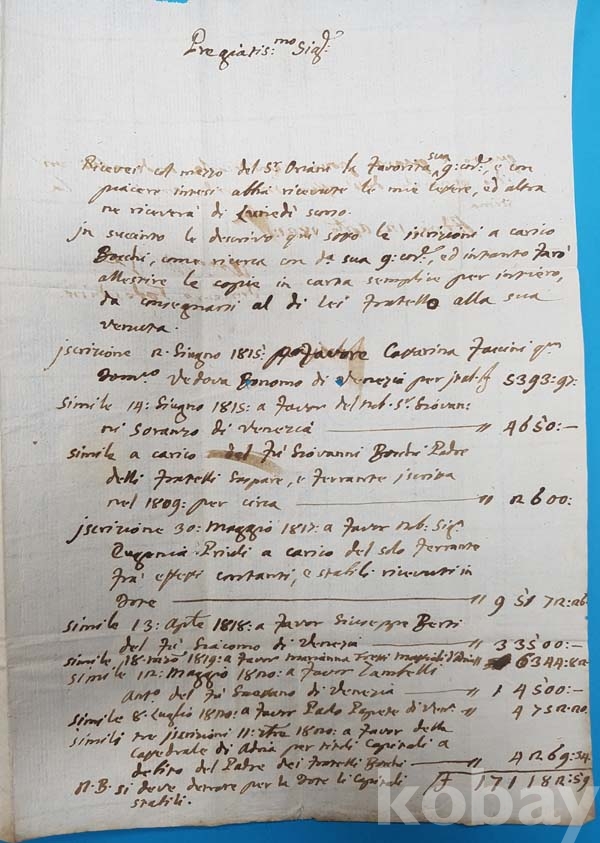 Pregiatis:mo Sig.r
Ricevei col mezzo del S.r Oriani la favorita sua g: cor:, e con
piacere intesi abbia ricevute le mie lettere, ed altra
ne riceverà di Lunedì scorso.
In succinto le descrivo qui sotto le iscrizioni a carico
Bocchi, come ricerca con d.a sua g: cor:, ed intanto farò
allestire le copie in carta semplice per intiero,
da consegnarsi al di Lei fratello alla sua
venuta.
Iscrizione 12. Giugno 1815: a favore Cattarina Faccini q.m
Dom.co Vedova Bonomo di Venezia per 5393:97:
Simile 14: Giugno 1815: a favor del Nob. S.r Giovan:
ni Soranzo di Venezia " 4650:—
Simile a carico del fù Giovanni Bocchi Padre
delli fratelli Gaspare, e Ferrante iscritta
nel 1809: per circa " 12600:
Iscrizione 30: Maggio 1817: a favor Nob: Sig.a
Eugenia Priuli a carico del solo Ferrante
frà effetti contanti, e stabili ricevuti in
Dote " 95172:26
Simile 13: Aprle 1818: a favor Giuseppe Berti
del fù Giacomo di Venezia " 33500:—
Simile 18: marzo 1819: a favor Marianna " 6344:82
Simile 12: Maggio 1820: a favor Zambelli
Ant.o del fù Gaetano di Venezia " 14500:—
Simile 8. Luglio 1820: a favor Paolo di Ven.a " 4752:20
Simili tre iscrizioni 11: 1820: a favor della
Cattedrale di Adria per Capitali a
debito del Padre dei fratelli Bocchi " 4269:34
N.B. si deve detrare per la Dote li Capitali 171182:59
stabili.
kobay